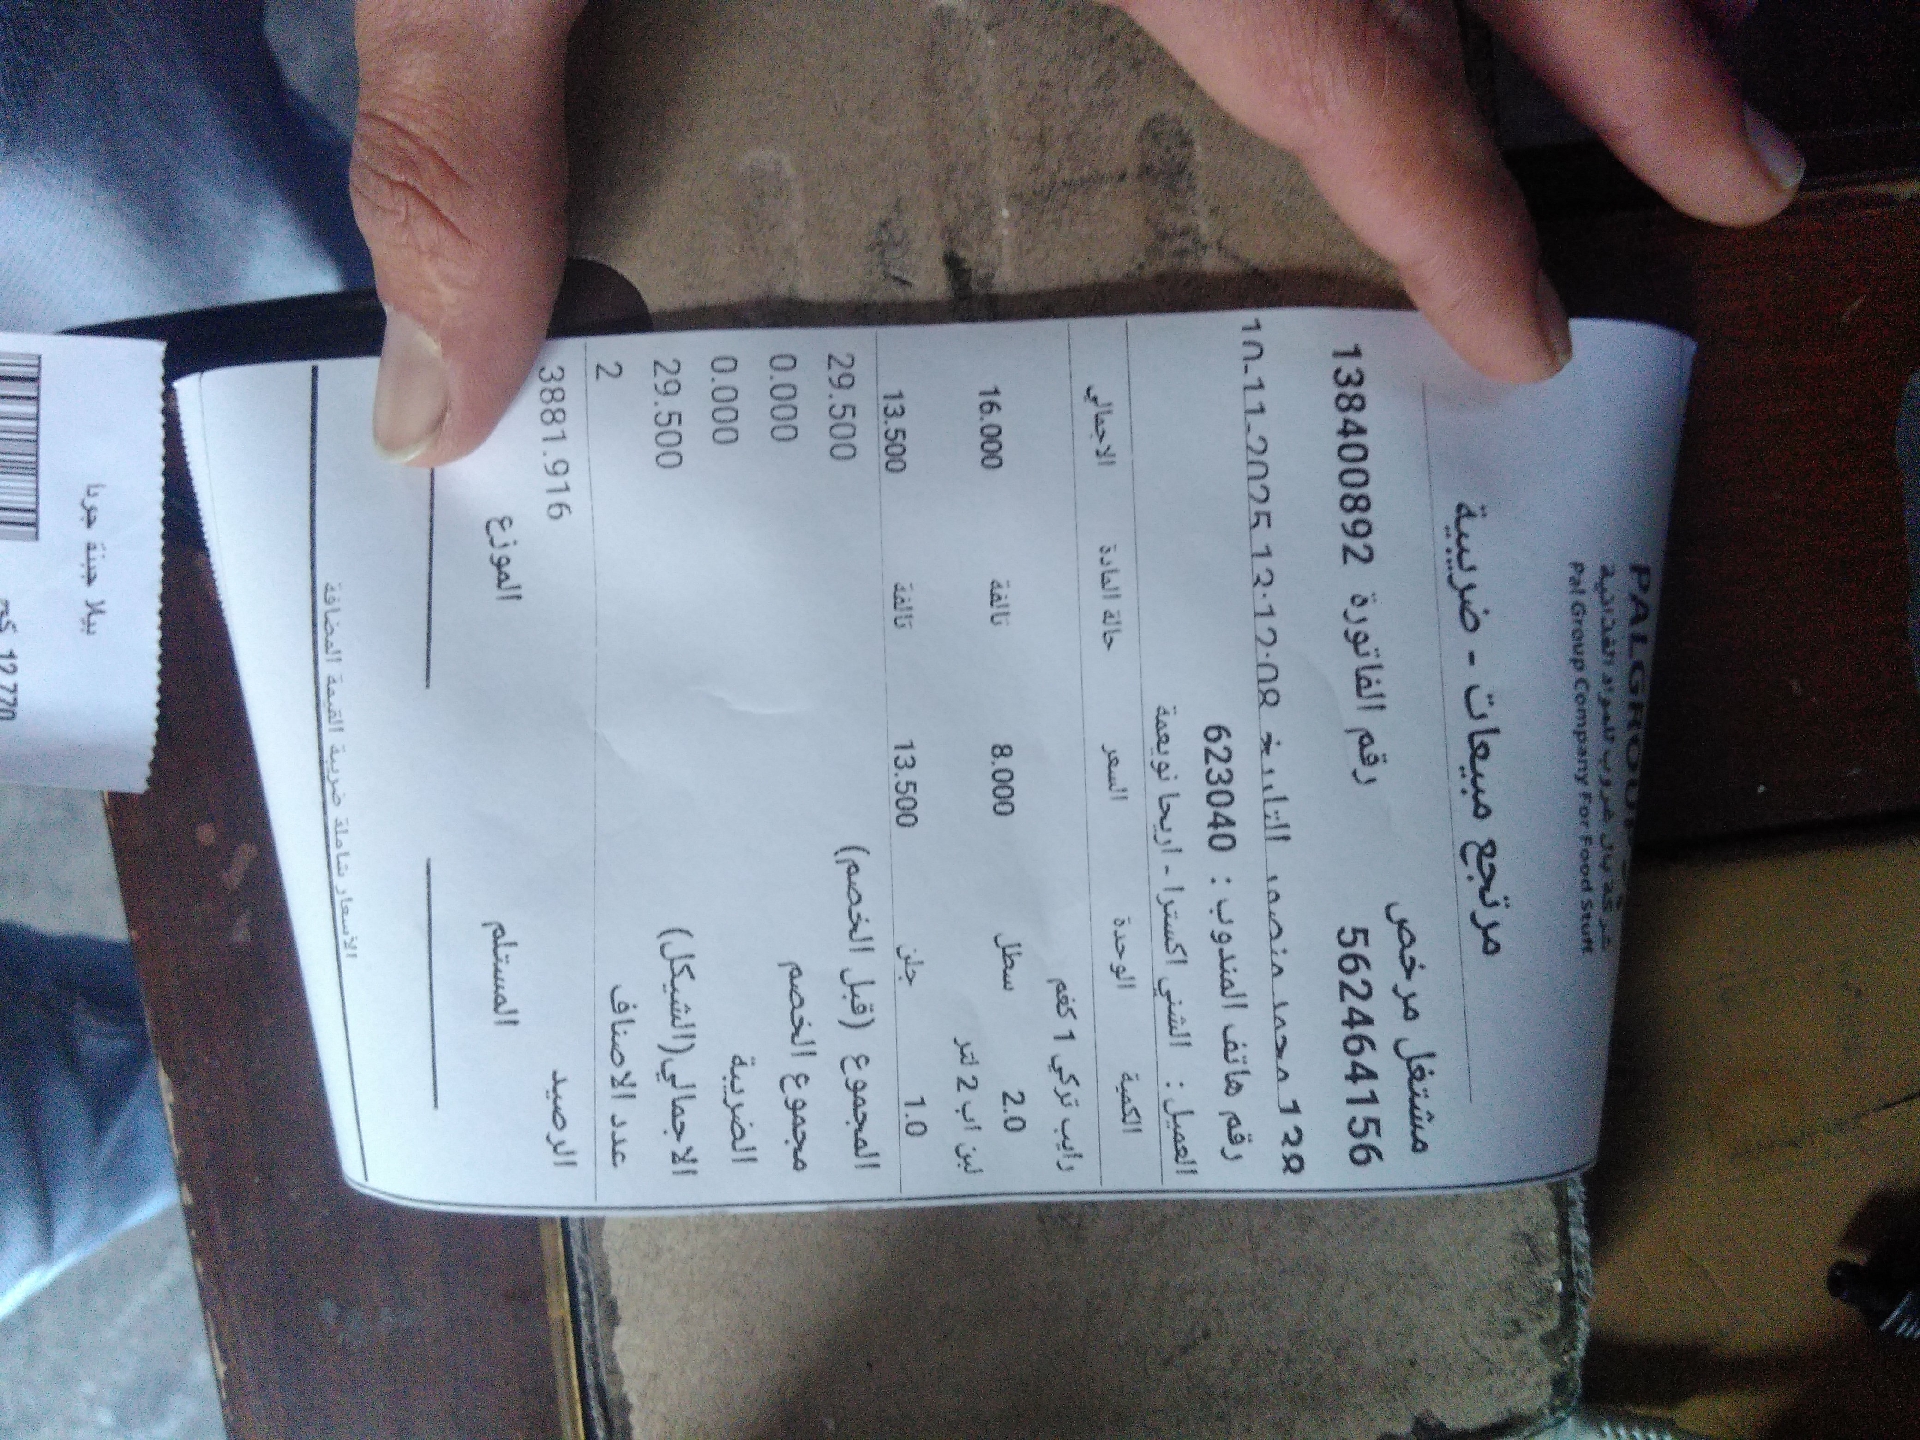 PALGROUP
شركة بال جروب للمواد الغذائية
Pal Group Company For Food Stuff
مرتجع مبيعات - ضريبية
مشتغل مرخص
562464156 رقم الفاتورة 138400892
128 محمد منصور التاريخ 10-11-2025 12:12:08
رقم هاتف المندوب : 623040
العميل : الشني اكسترا - اريحا نويعمة
الكمية الوحدة السعر حالة المادة الاجمالي
رايب تركي 1 كغم
2.0 سطل 8.000 تالفة 16.000
لبن اب 2 لتر
1.0 جلن 13.500 تالفة 13.500
المجموع (قبل الخصم) 29.500
مجموع الخصم 0.000
الضريبة 0.000
الاجمالي(الشيكل) 29.500
عدد الاصناف 2
الرصيد 3881.916
المستلم الموزع
الاسعار شاملة ضريبة القيمة المضافة
بيلا جبنة جردا
12.770 كجم